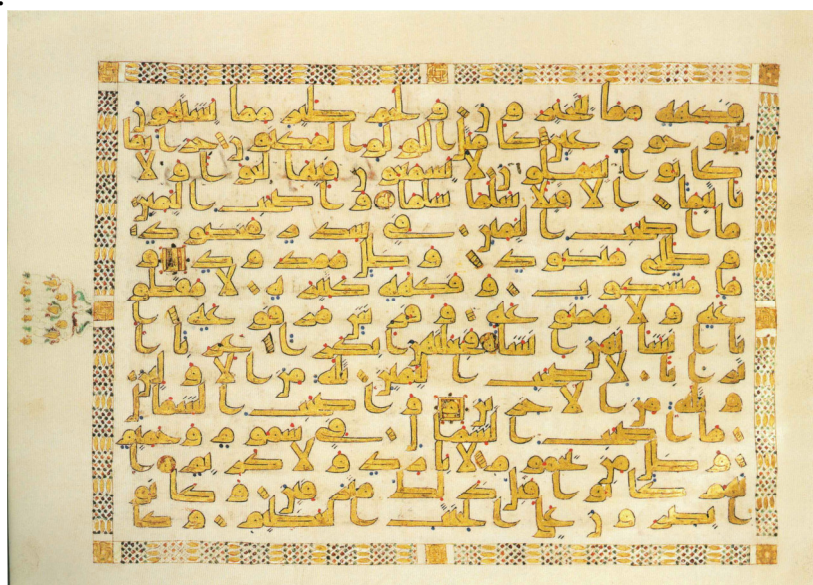 فكهة مما يتخيرون ولحم طير مما يشتهون
وحور عين كامثل اللولو المكنون جزا بما
كانوا يعملون لا يسمعون فيها لغوا ولا
تاثيما الا قيلا سلما سلما واصحب اليمين
ما اصحب اليمين في سدر مخضود
وطلح منضود وظل ممدود و
ما مسكوب وفكهة كثيرة لا مقطو
عة ولا ممنوعة وفرش مرفوعة ا
نا انشانهن انشا فجعلنهن ابكرا عربا ا
ترابا لاصحب اليمين ثلة من الاولين
وثلة من الاخرين واصحب الشمال
ما اصحب الشمال في سموم وحميم
وظل من يحموم لا بارد ولا كريم ا
نهم كانوا قبل ذلك مترفين وكانو
ا يصرون على الحنث العظيم وكا